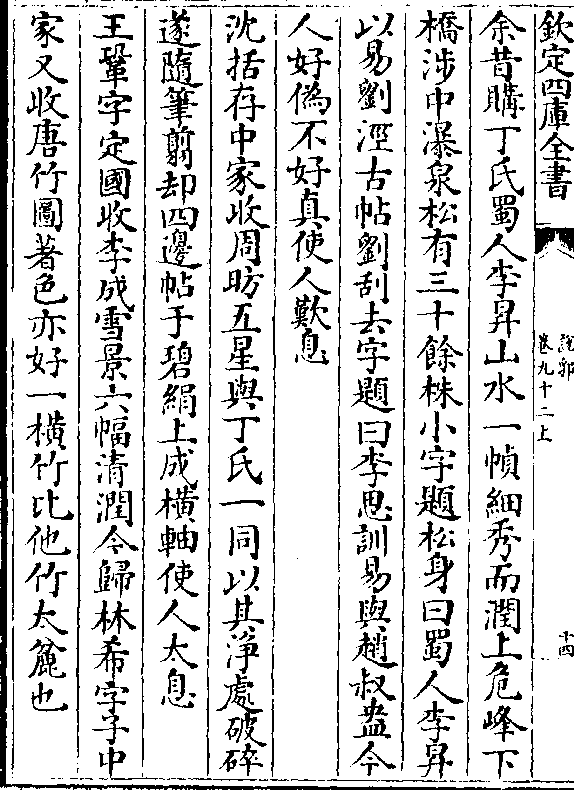 欽定四庫全書
説郛
卷九十二上
十四
余昔購丁氏蜀人李昇山水一幀細秀而潤上危峰下
橋渉中瀑泉松有三十餘株小字題松身曰蜀人李昇
以易劉涇古帖劉刮去字題曰李思訓易與趙叔盎今
人好偽不好真使人歎息
沈括存中家收周昉五星與丁氏一同以其浄處破碎
遂隨筆翦却四邊帖于碧絹上成横軸使人太息
王鞏字定國收李成雪景六幅清潤今歸林希字子中
家又收唐竹圖著色亦好一横竹比他竹太麄也